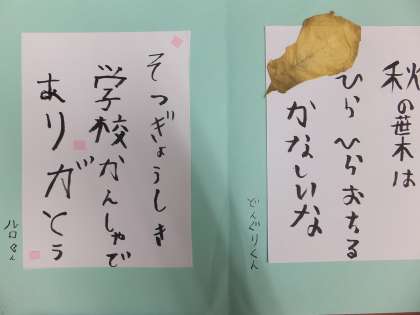 秋の葉木は
ひらひらおちる
かなしいな
どんぐりくん
そつぎょうしき
学校かんしゃで
ありがとう